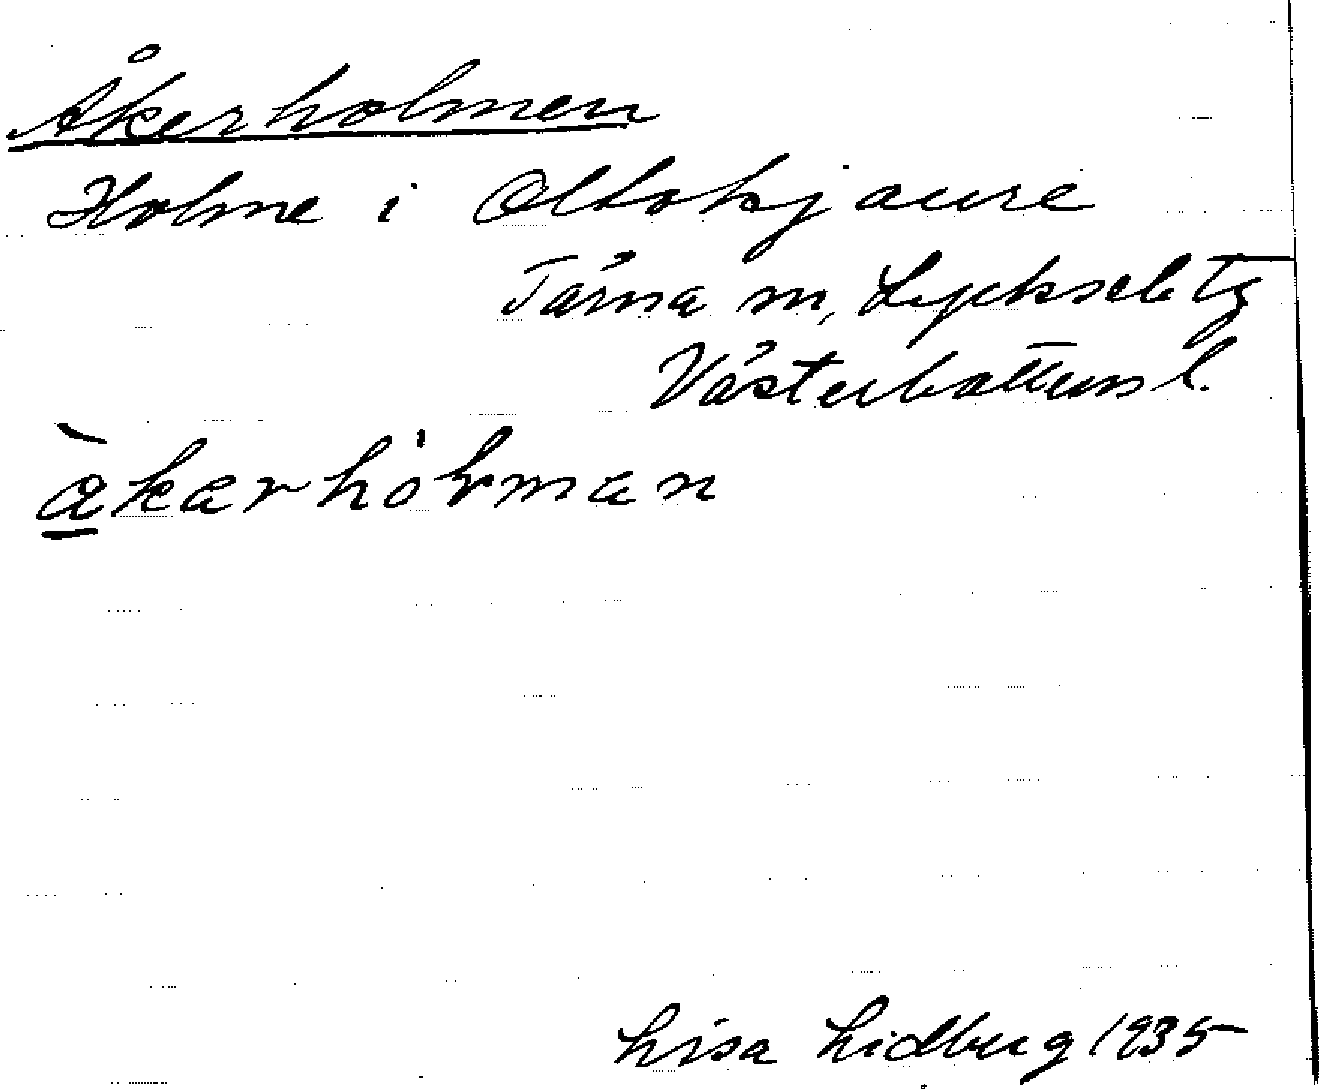 Åkerholmen
Holme i Oltokjaure
Tärna sn, Lycksele tg
Västerbottens l.
åkarhólman
Lisa Lidberg 1935